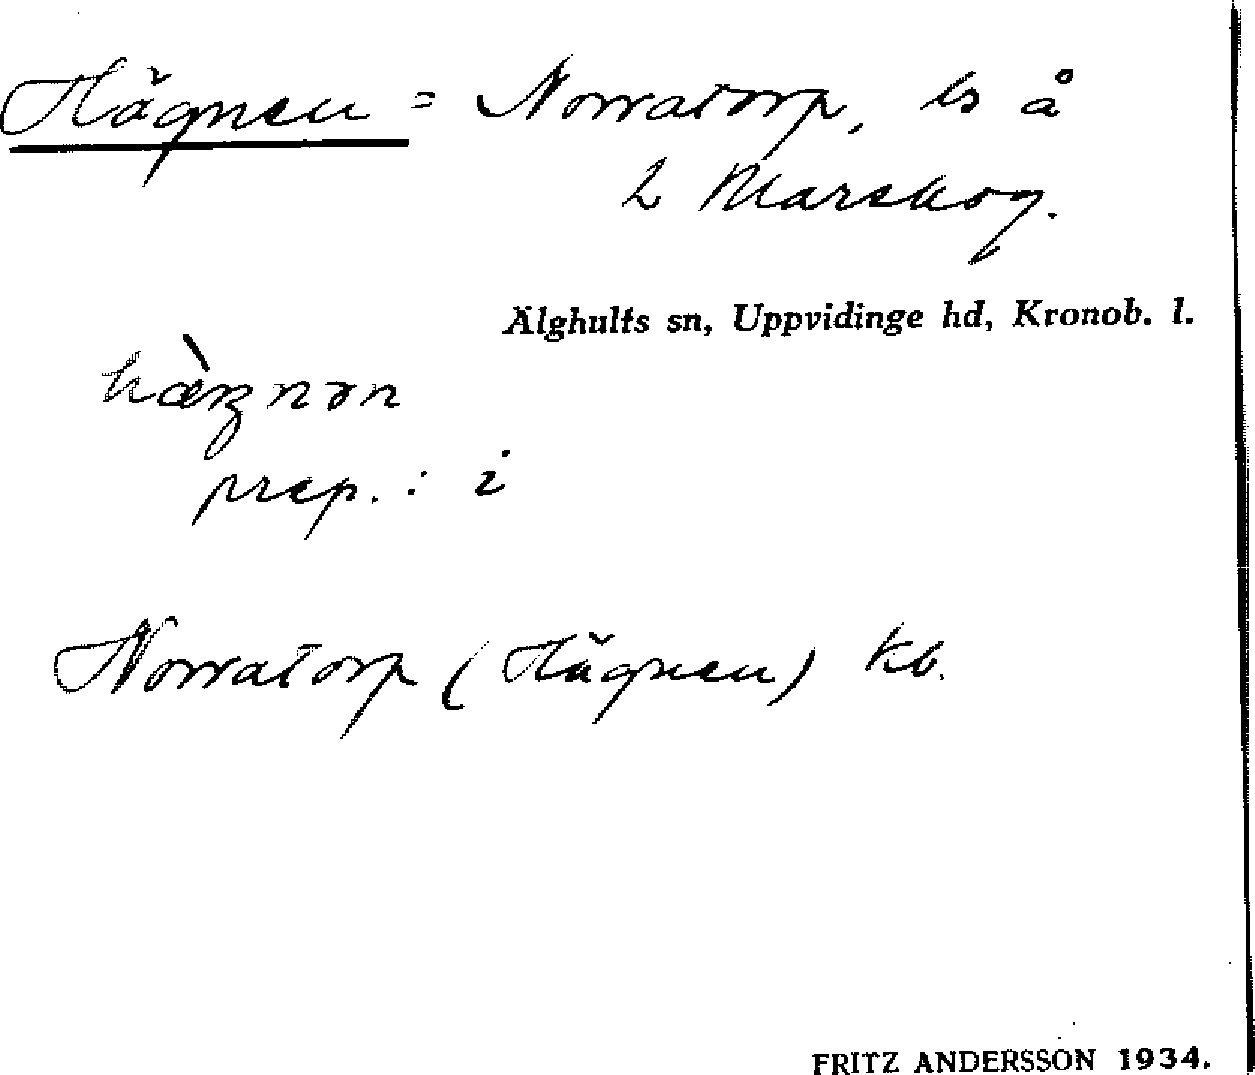 Hägnen = Norratorp, ls å
2 Marskog.
Älghults sn, Uppvidinge hd, Kronob. l.
prep. : i
Norratorp (Hägnen) kb.
FRITZ ANDERSSON 1934.